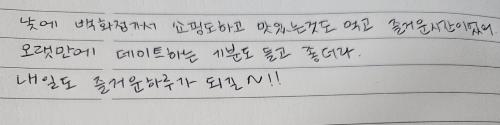 낮에 백화점가서 쇼핑도하고 맛있는것도 먹고 즐거운시간이였어.
오랫만에 데이트하는 기분도 들고 좋더라.
내일도 즐거운하루가 되길~!!